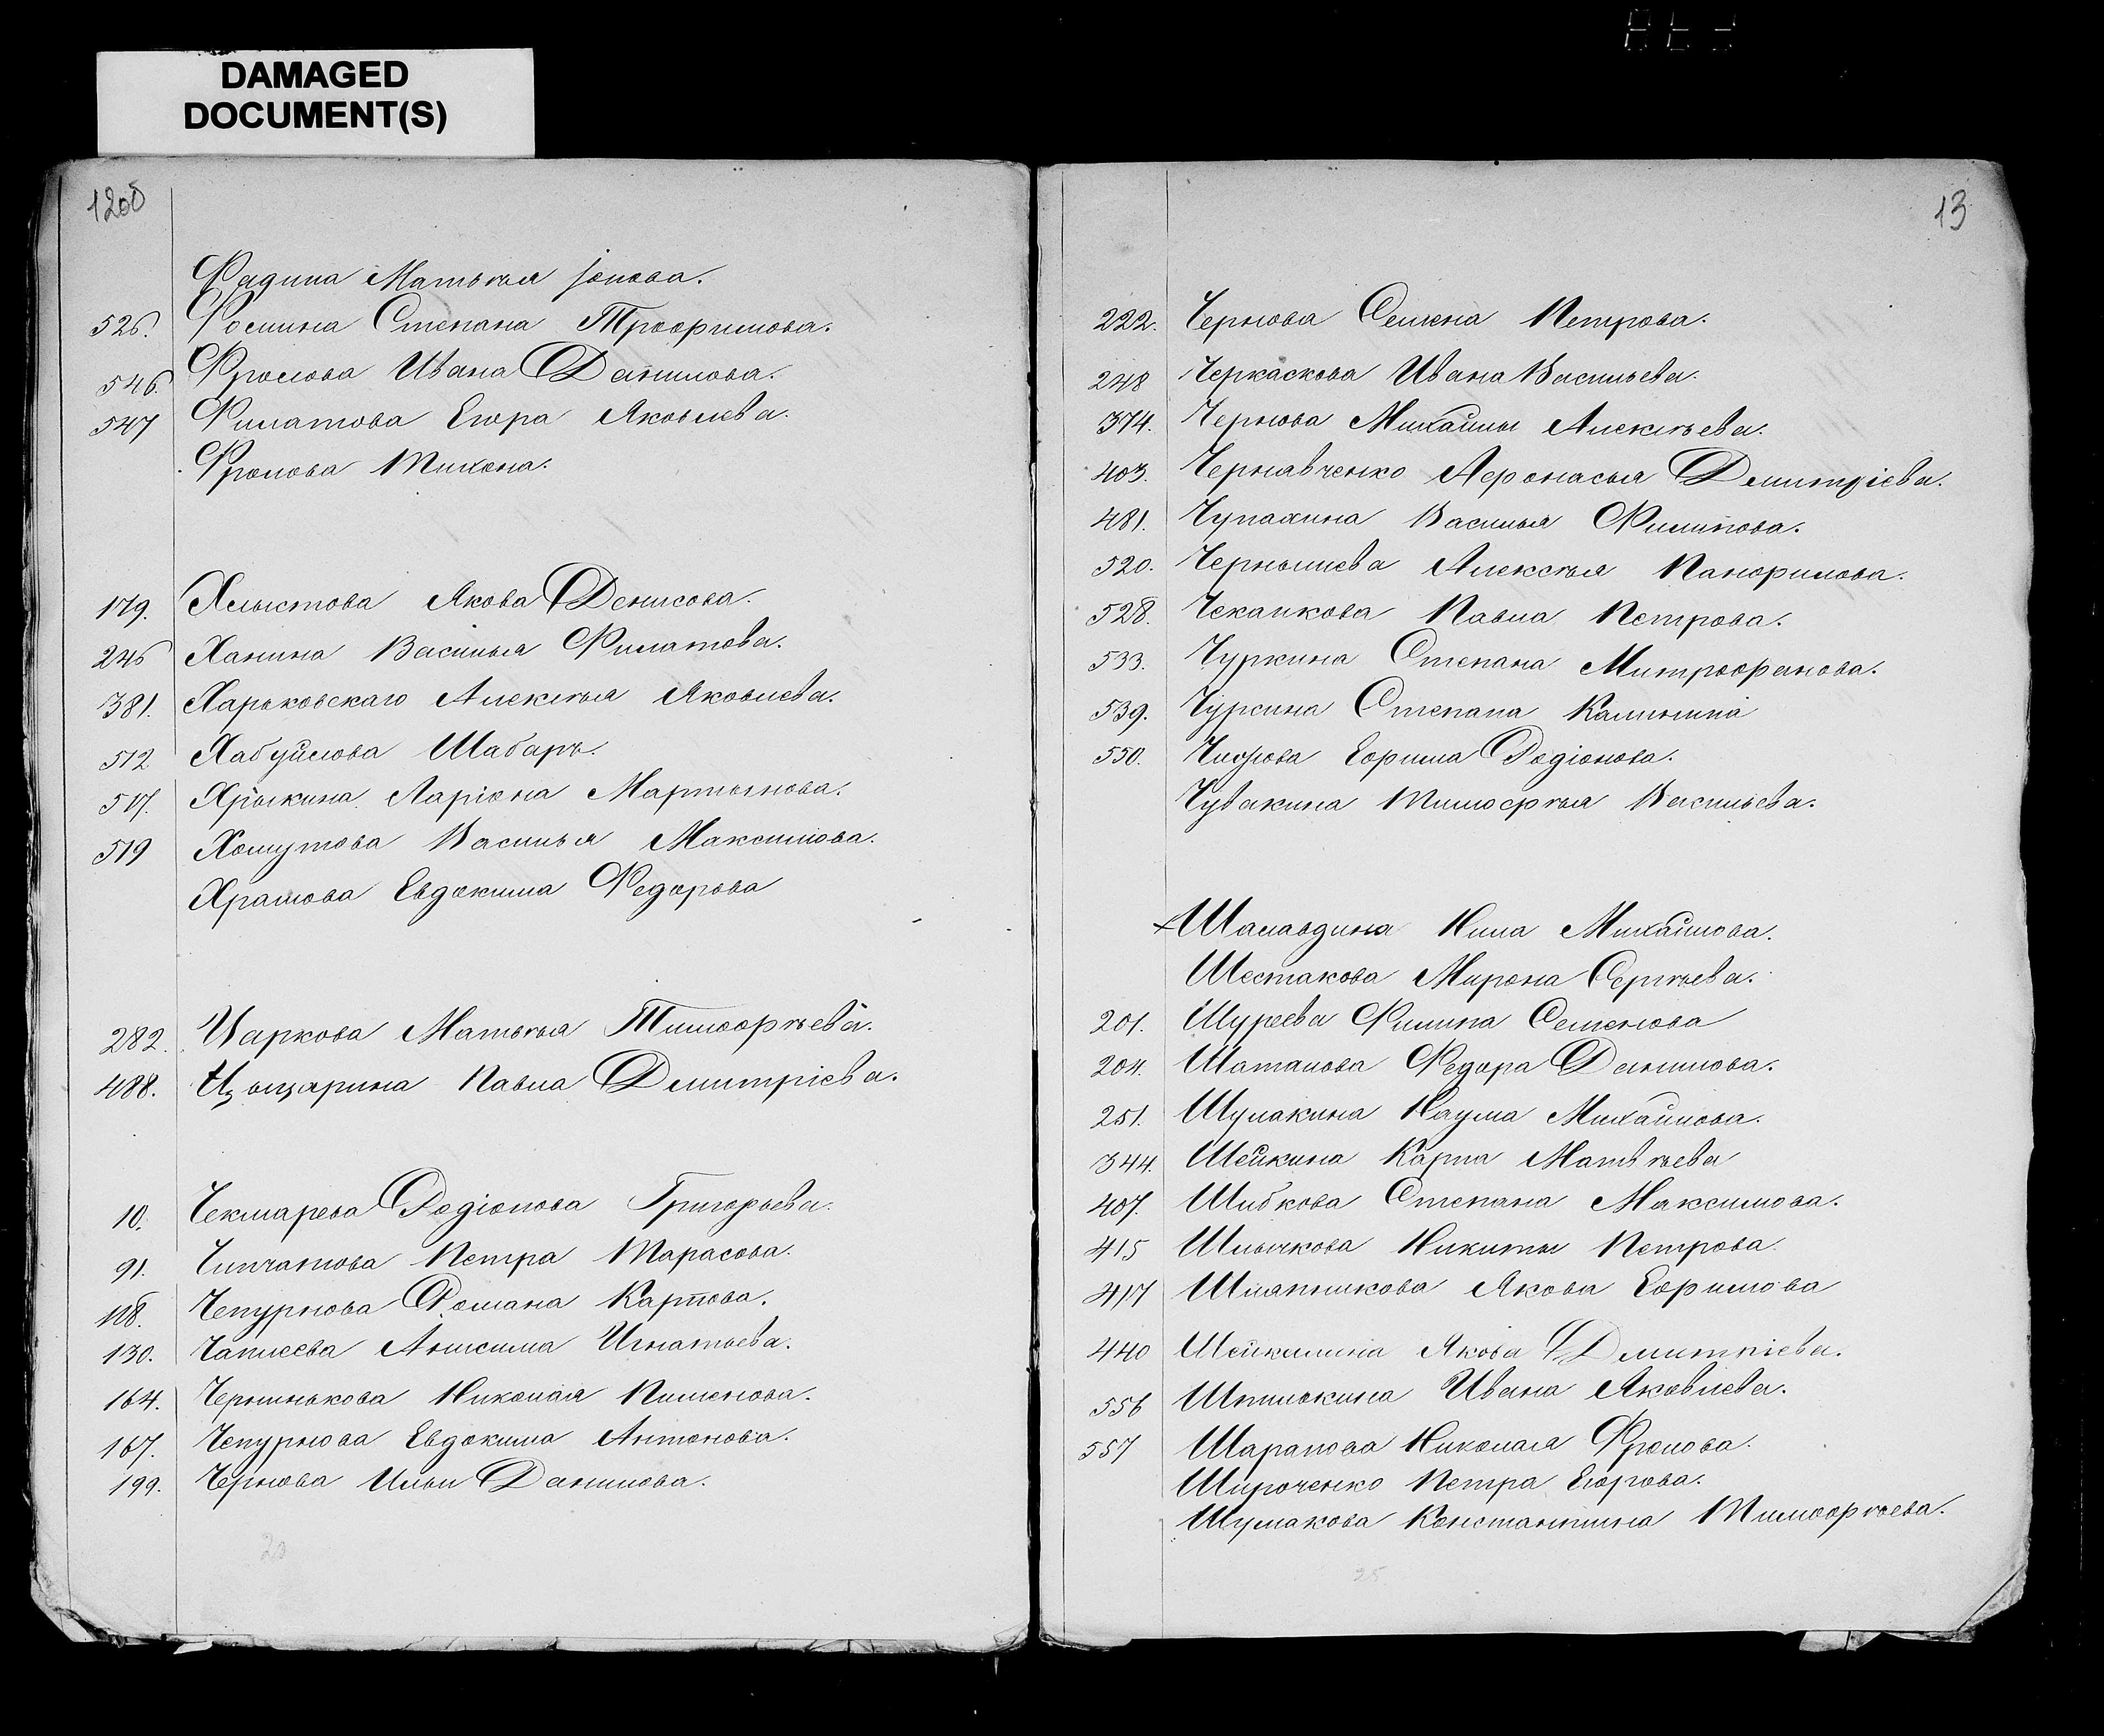 DAMAGED
DOCUMENT(S)
12об
Фадина Матвѣя Іонова.
526. Фомина Степана Трофимова.
546. Фролова Ивана Данилова.
547 Филатова Егора Яковлева.
Фролова Тихона.
179. Хлыстова Якова Денисова.
246 Ханина Василья Филатова.
381. Харьковскаго Алексѣя Яковлева.
512 Хабуйлова Шабаръ.
517. Хрыкина Ларіона Мартынова.
519 Хомутова Василья Максимова.
Храмова Евдокима Федорова
282. Царкова Матвѣя Тимофѣева.
488. Цыцарина Павла Дмитріева.
10. Чекмарева Родіонова Григорьева.
91. Чипчатова Петра Тарасова.
108. Чепурнова Романа Карпова.
130. Чаплеева Анисима Игнатьева.
164. Чернинькова Николая Пименова.
167. Чепурнова Евдокима Антонова.
199. Чернова Ильи Данилова.
20
13
222. Чернова Семена Петрова.
248 Черкаскова Ивана Васильева.
374. Чернова Михайлы Алексѣева.
403. Чернавченко Афонасья Дмитріева.
481. Чупахина Василья Филипова.
520. Чернышева Алексѣя Панфилова.
528. Чекалкова Павла Петрова.
533. Чуркина Степана Митрофанова.
539. Чурсина Степана Калинина
550. Чифрова Ефима Родіонова.
Чувакина Тимофѣя Васильева.
Шалавдина Нила Михайлова.
Шестакова Мирона Сергѣева.
201. Шуреева Филипа Семенова
204. Шаталова Федора Данилова.
251. Шулакина Наума Михайлова.
344. Шейкина Карпа Матвѣева
407. Шибкова Степана Максимова.
415 Шлычкова Никиты Петрова.
417 Шляпникова Якова Ефимова
440 Шейкилина Якова Дмитріева.
556 Шпилькина Ивана Яковлева.
557 Шарапова Николая Фролова.
Широченко Петра Егорова.
Шумакова Константина Тимофѣева.
25